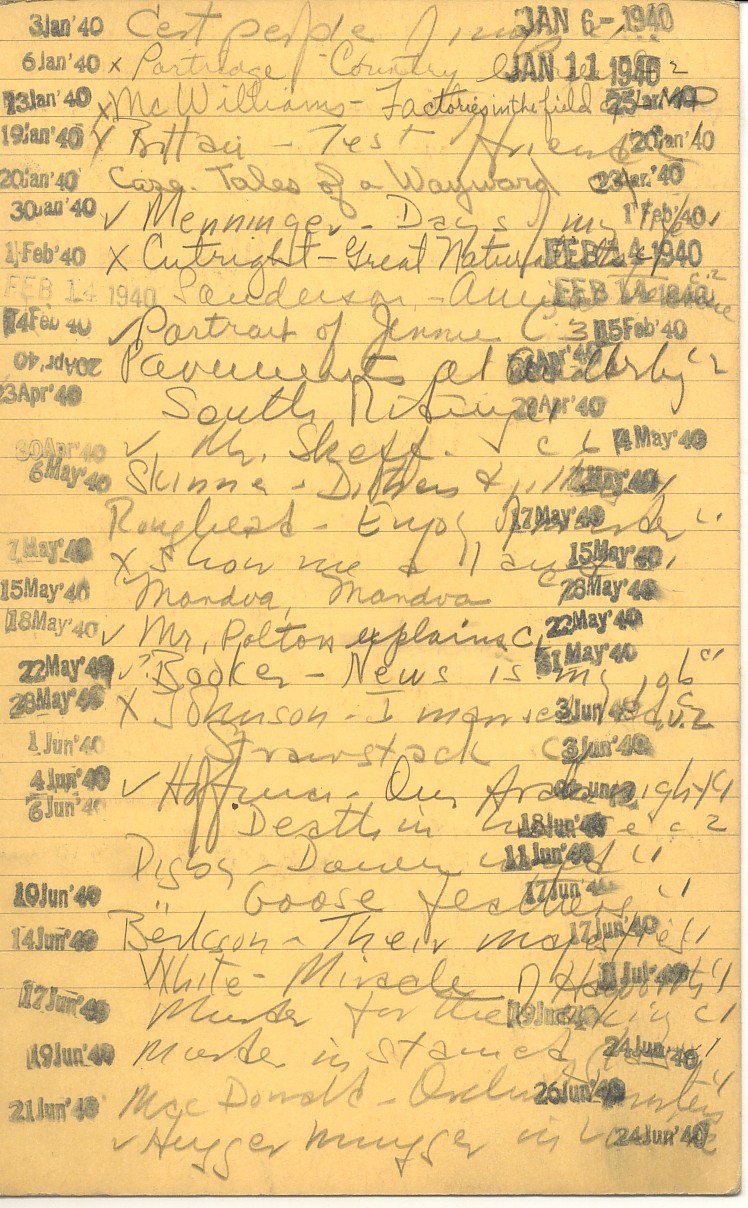 3Jan'40 Cert people JAN 6-1940
6Jan'40 x Partridge - Country JAN 11 1940 c 2
13Jan'40 x McWilliams - Factories in the field 25Jan'40
19Jan'40 x Brittain - Test 20Jan'40
20Jan'40 Case. Tales of a Wayward 23Jan'40
30Jan'40 ✓ Menninger - Days of my 1Feb'40
1Feb'40 x Cutright - Great Naturalists FEB 14 1940
FEB 14 1940 Sanderson - FEB 14 1940 c.2
14Feb'40 ✓ Portrait of Jennie C 3 15Feb'40
20Apr'40 Pavements at Anderby c 2
23Apr'40 South Riding 29Apr'40
30Apr'40 ✓ Mr. Skeff. c 6 4May'40
6May'40 Skinner - Dithers & 7May'40
Roughead - Enjoy 17May'40 c 1
7May'40 x Show me a 15May'40
15May'40 Mandoa, Mandoa c 28May'40
18May'40 ✓ Mr. Polton explains c 1 22May'40
22May'40 ✓ Booker - News is my job c 1 31May'40
28May'40 x Johnson - I married adv. c.2 3Jun'40
1Jun'40 Strawstack c 3Jun'40
4Jun'40 ✓ Hoffman - Our Arab nights c 1
6Jun'40 Death in 18Jun'40 c 2
Digby - Down 11Jun'40 c 1
10Jun'40 Goose feathers 17Jun'40 c 1
14Jun'40 Berkson - Their majesties 17Jun'40 1
White - Miracle of Haworth 1Jul'40 c 1
17Jun'40 Murder for the asking 19Jun'40 c 1
19Jun'40 Murder in stained 24Jun'40 c 1
21Jun'40 MacDonald - Orchid hunters 26Jun'40 c 1
✓ Hugger mugger in 24Jun'40